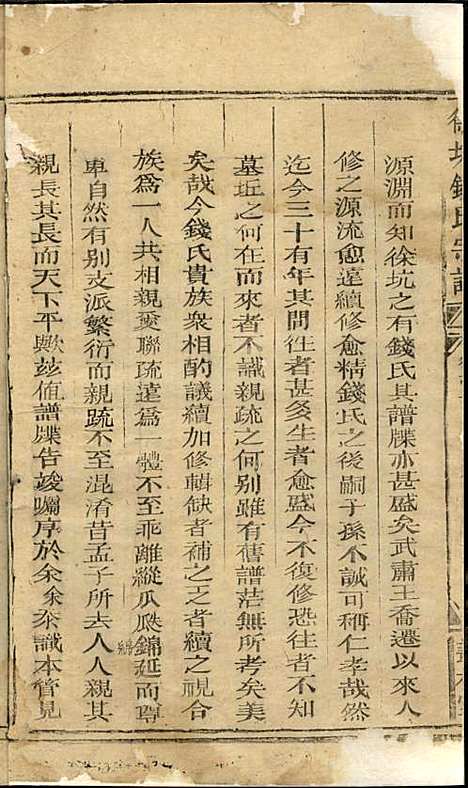 徐坑錢氏宗譜
源淵而知徐坑之有錢氏其譜牒亦甚盛矣武肅王喬遷以來人
修之源流愈遠續修愈精錢氏之後嗣子孫不誠可稱仁孝哉然
迄今三十有年其間往者甚多生者愈盛今不復修恐往者不知
墓坵之何在而來者不識親疏之何別雖有舊譜茫無所考矣美
矣哉今錢氏貴族衆相酌議續加修輯缺者補之乏者續之視合
族爲一人共相親愛聯疏遠爲一體不至乖離縱瓜瓞錦延而尊
綿
卑自然有別支派繁衍而親疏不至混淆昔孟子所去人人親其
親長其長而天下平歟玆值譜牒告竣囑序於余余忝識本管見